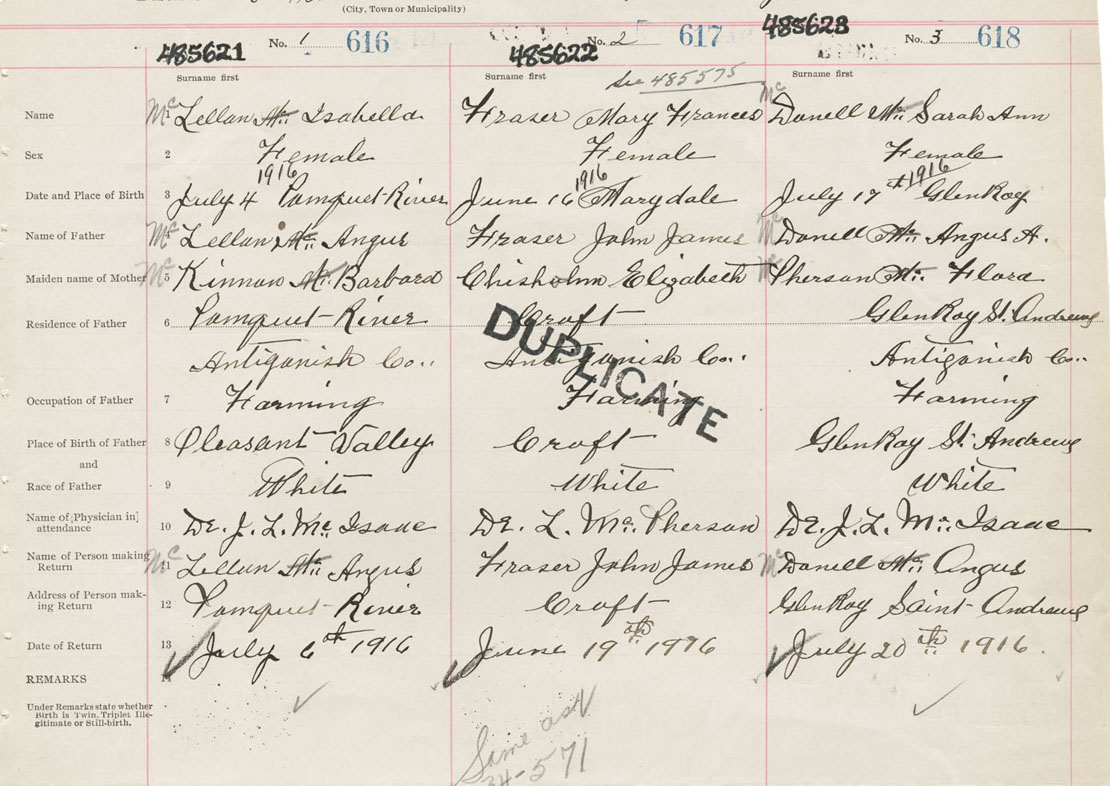 (City, Town or Municipality)
485621 No. 1 616 485622 No. 2 617 485623 No. 3 618
Surname first Surname first Surname first
See 485575
Name Mc Lellan Mc Isabella Fraser Mary Frances Mc Donell Mc Sarah Ann
Sex 2 Female Female Female
1916 1916 1916
Date and Place of Birth 3 July 4 Pomquet River June 16 Marydale July 17th Glen Roy
Name of Father Mc Lellan Mc Angus Fraser John James Mc Donell Mc Angus A.
Maiden name of Mother 5 Mc Kinnon Mc Barbara Chisholm Elizabeth Mc Pherson Mc Flora
Residence of Father 6 Pomquet River Croft Glen Roy St. Andrews
Antigonish Co. Antigonish Co. Antigonish Co.
DUPLICATE
Occupation of Father 7 Farming Farming Farming
Place of Birth of Father 8 Pleasant Valley Croft Glen Roy St. Andrews
and
Race of Father 9 White White White
Name of [Physician in] attendance 10 Dr. J. L. Mc Isaac Dr. L. Mc Pherson Dr. J. L. Mc Isaac
Name of Person making Return 11 Mc Lellan Mc Angus Fraser John James Mc Donell Mc Angus
Address of Person mak-
ing Return 12 Pomquet River Croft Glen Roy Saint Andrews
Date of Return 13 July 6th 1916 June 19th 1916 July 20th 1916.
REMARKS 14
Under Remarks state whether
Birth is Twin, Triplet Ille-
gitimate or Still-birth.
Same as
34-571